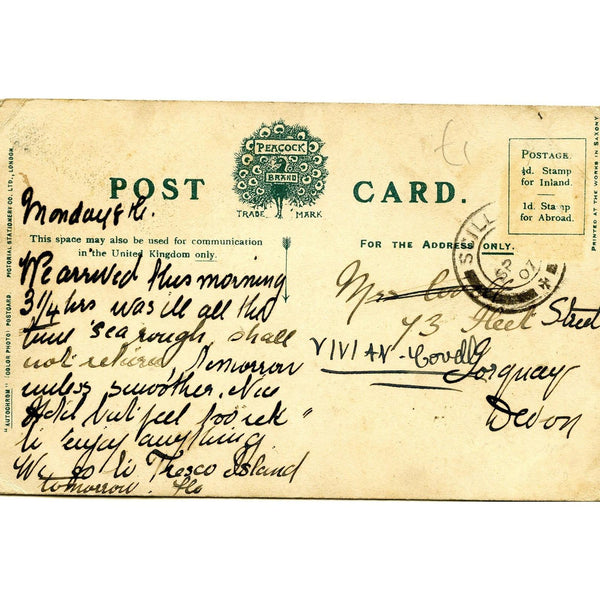 PEACOCK
BRAND
TRADE MARK
POST CARD.
POSTAGE.
½d. Stamp
for Inland.
1d. Stamp
for Abroad.
PRINTED AT THE WORKS IN SAXONY
"AUTOCHROM" (COLOR PHOTO) POSTCARD
PICTORIAL STATIONERY CO. LTD., LONDON.
This space may also be used for communication
in the United Kingdom only.
FOR THE ADDRESS ONLY.
SCILL
SP
07
£1
Monday 8th.
We arrived this morning
3¼ hrs was ill all the
time sea rough, shall
not return, tomorrow
unless smoother. Nice
but feel too sick
to enjoy anything
We go to Tresco Island
tomorrow. Flo
Mrs
73 Fleet Street
VIVIAN-Covell
Torquay
Devon